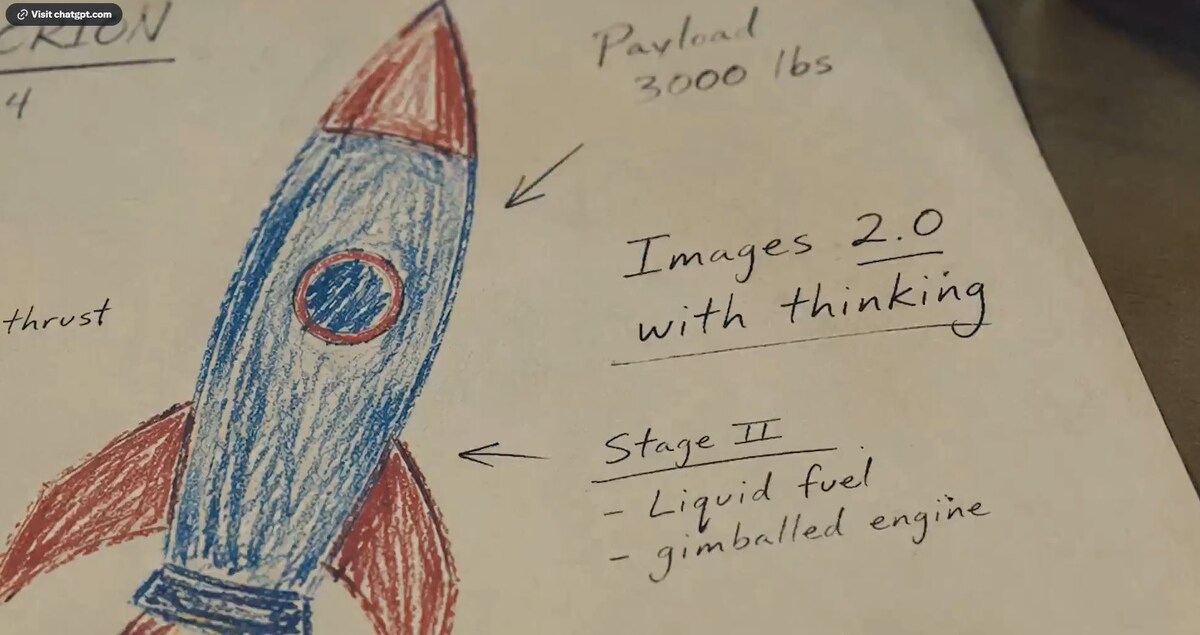 Visit chatgpt.com
4
thrust
Payload
3000 lbs
Images 2.0
with thinking
Stage II
- Liquid fuel
- gimballed engine